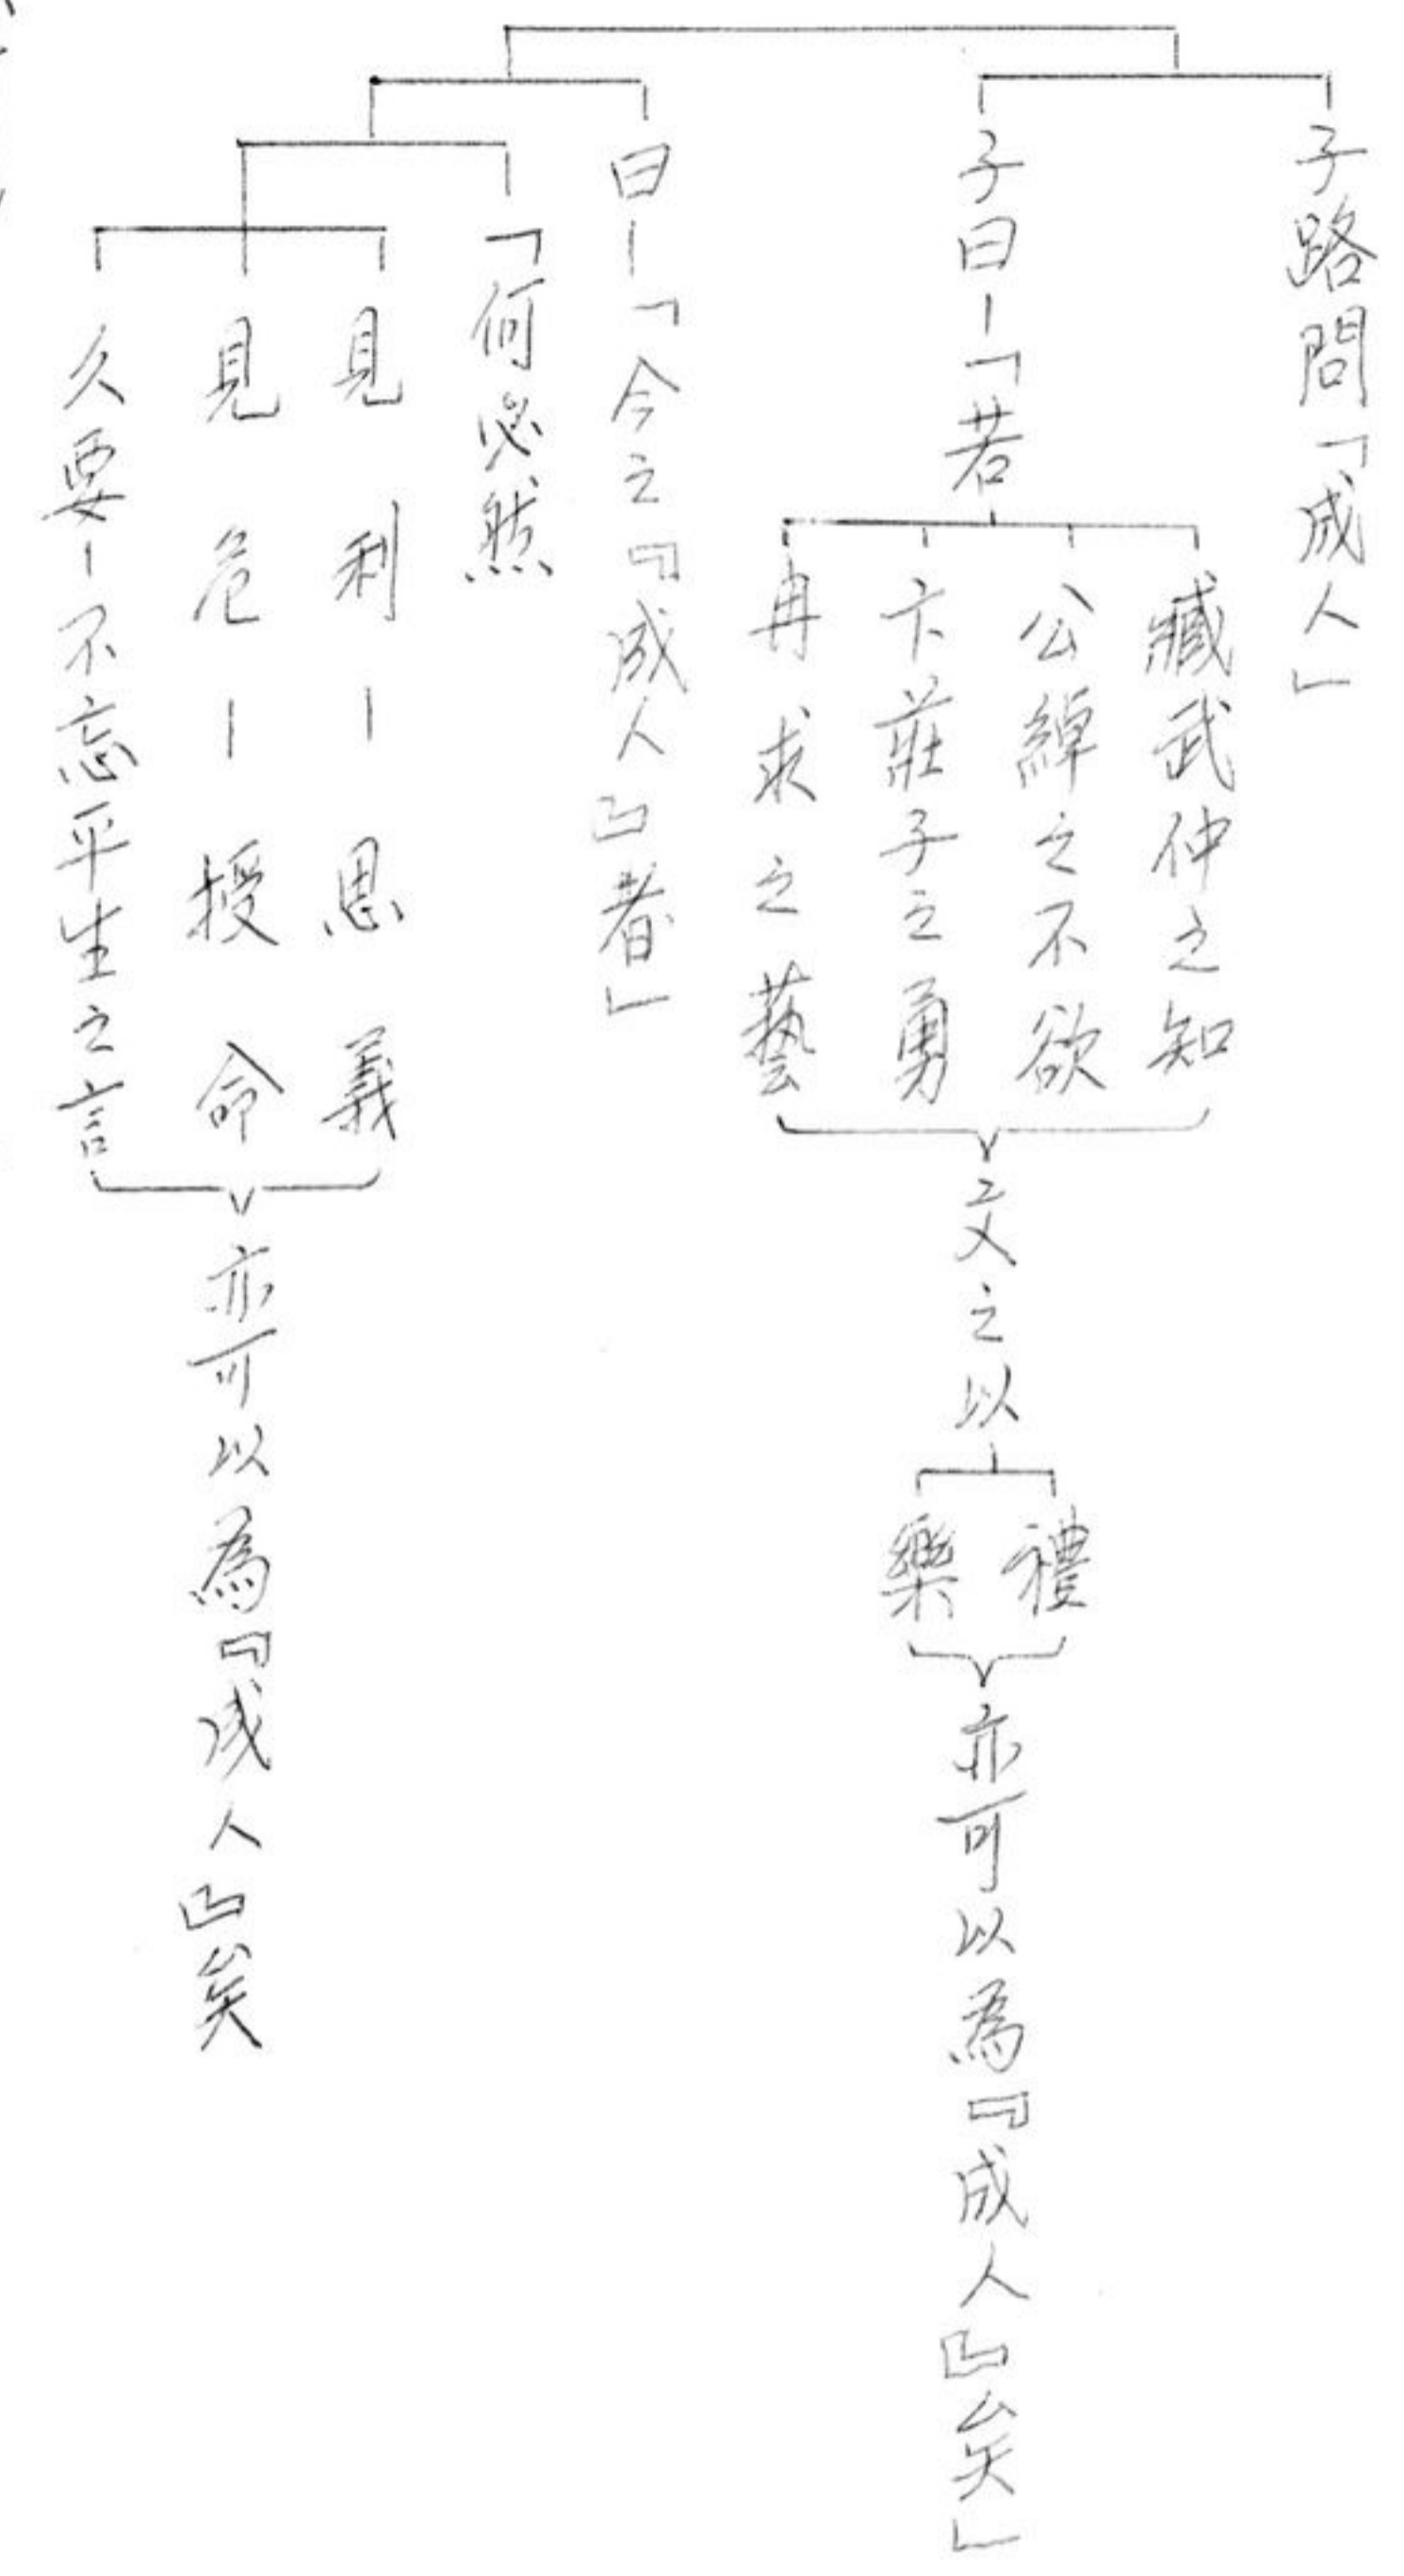 子路問「成人」
子曰－「若
臧武仲之知
公綽之不欲
卞莊子之勇
冉求之藝
文之以
禮
樂
亦可以為『成人』矣」
曰－「今之『成人』者」
「何必然
見利－思義
見危－授命
久要－不忘平生之言
亦可以為『成人』矣